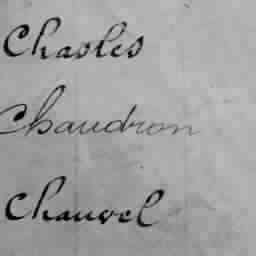 Chasles
Chaudron
Chauvel